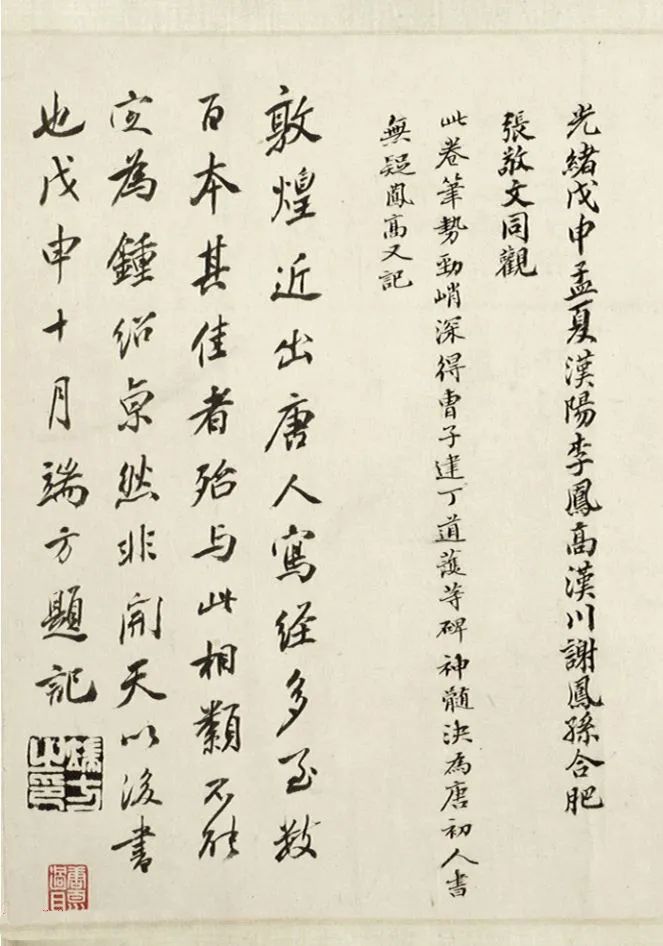 光緒戊申孟夏漢陽李鳳高漢川謝鳳孫合肥
張敬文同觀
此卷筆勢勁峭深得曹子建丁道護等碑神髓決為唐初人書
無疑鳳高又記
敦煌近出唐人寫經多至數
百本其佳者殆与此相類不能
定為鍾紹京然非開天以後書
也戊申十月端方題記
端方之印